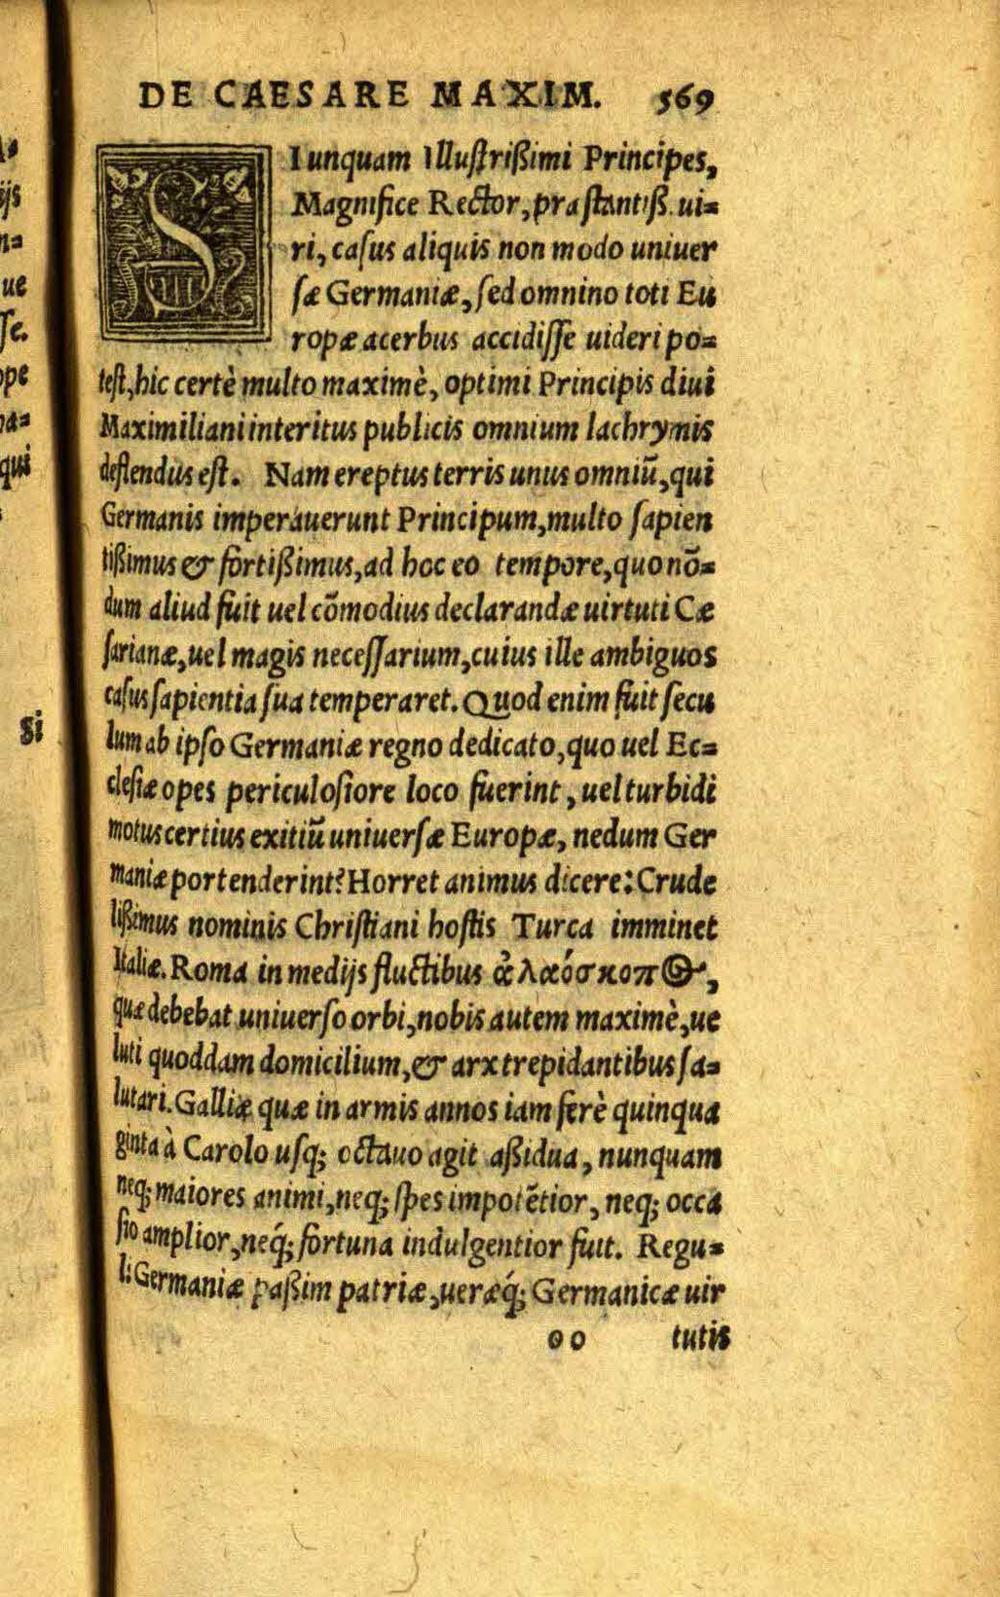 DE CAESARE MAXIM. 569
SI unquam Illustrißimi Principes,
Magnifice Rector, præstantiß. ui=
ri, casus aliquis non modo uniuer
sæ Germaniæ, sed omnino toti Eu
ropæ acerbus accidisse uideri po=
test, hic certè multo maximè, optimi Principis diui
Maximiliani interitus publicis omnium lachrymis
deflendus est. Nam ereptus terris unus omniũ, qui
Germanis imperauerunt Principum, multo sapien
tißimus & fortißimus, ad hoc eo tempore, quo nõ=
dum aliud fuit uel cõmodius declarandæ uirtuti Cæ
sarianæ, uel magis necessarium, cuius ille ambiguos
casus sapientia sua temperaret. Quod enim fuit secu
lum ab ipso Germaniæ regno dedicato, quo uel Ec=
clesiæ opes periculosiore loco fuerint, uel turbidi
motus certius exitiũ uniuersæ Europæ, nedum Ger
maniæ portenderint? Horret animus dicere: Crude
lißimus nominis Christiani hostis Turca imminet
Italiæ. Roma in medijs fluctibus ἀλαόσκοπος,
quæ debebat uniuerso orbi, nobis autem maximè, ue
luti quoddam domicilium, & arx trepidantibus sa=
lutari. Galliæ quæ in armis annos iam ferè quinqua
ginta à Carolo usq; octauo agit aßidua, nunquam
neq; maiores animi, neq; spes impotẽtior, neq; occa
sio amplior, neq́; fortuna indulgentior fuit. Regu=
li Germaniæ paßim patriæ, ueræq́; Germanicæ uir
oo tutis
ijs
n=
ue
se.
ope
qui
Si